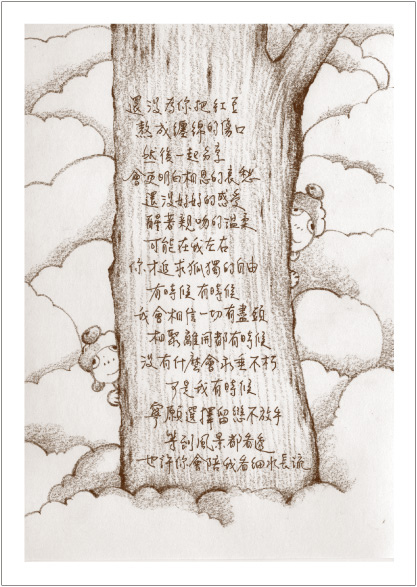 還沒为你把紅豆
熬成纏綿的傷口
然後一起分享
會更明白相思的哀愁
還沒好好的感受
醒著親吻的溫柔
可能在我左右
你才追求孤獨的自由
有時候有時候
我會相信一切有盡頭
相聚離開都有時候
沒有什麼會永垂不朽
可是我有時候
寧願選擇留戀不放手
等到風景都看透
也許你會陪我看細水長流